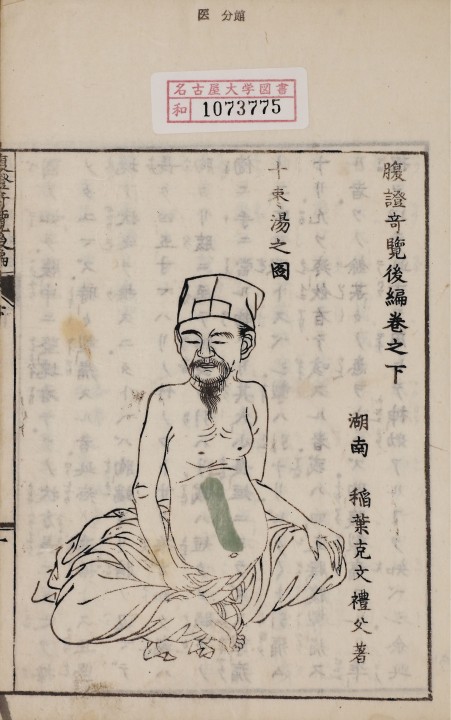 医 分館
名古屋大学図書
和 1073775
腹證奇覽後編卷之下
湖南 稲葉克文禮父著
十枣湯之圖
腹證奇覽後編